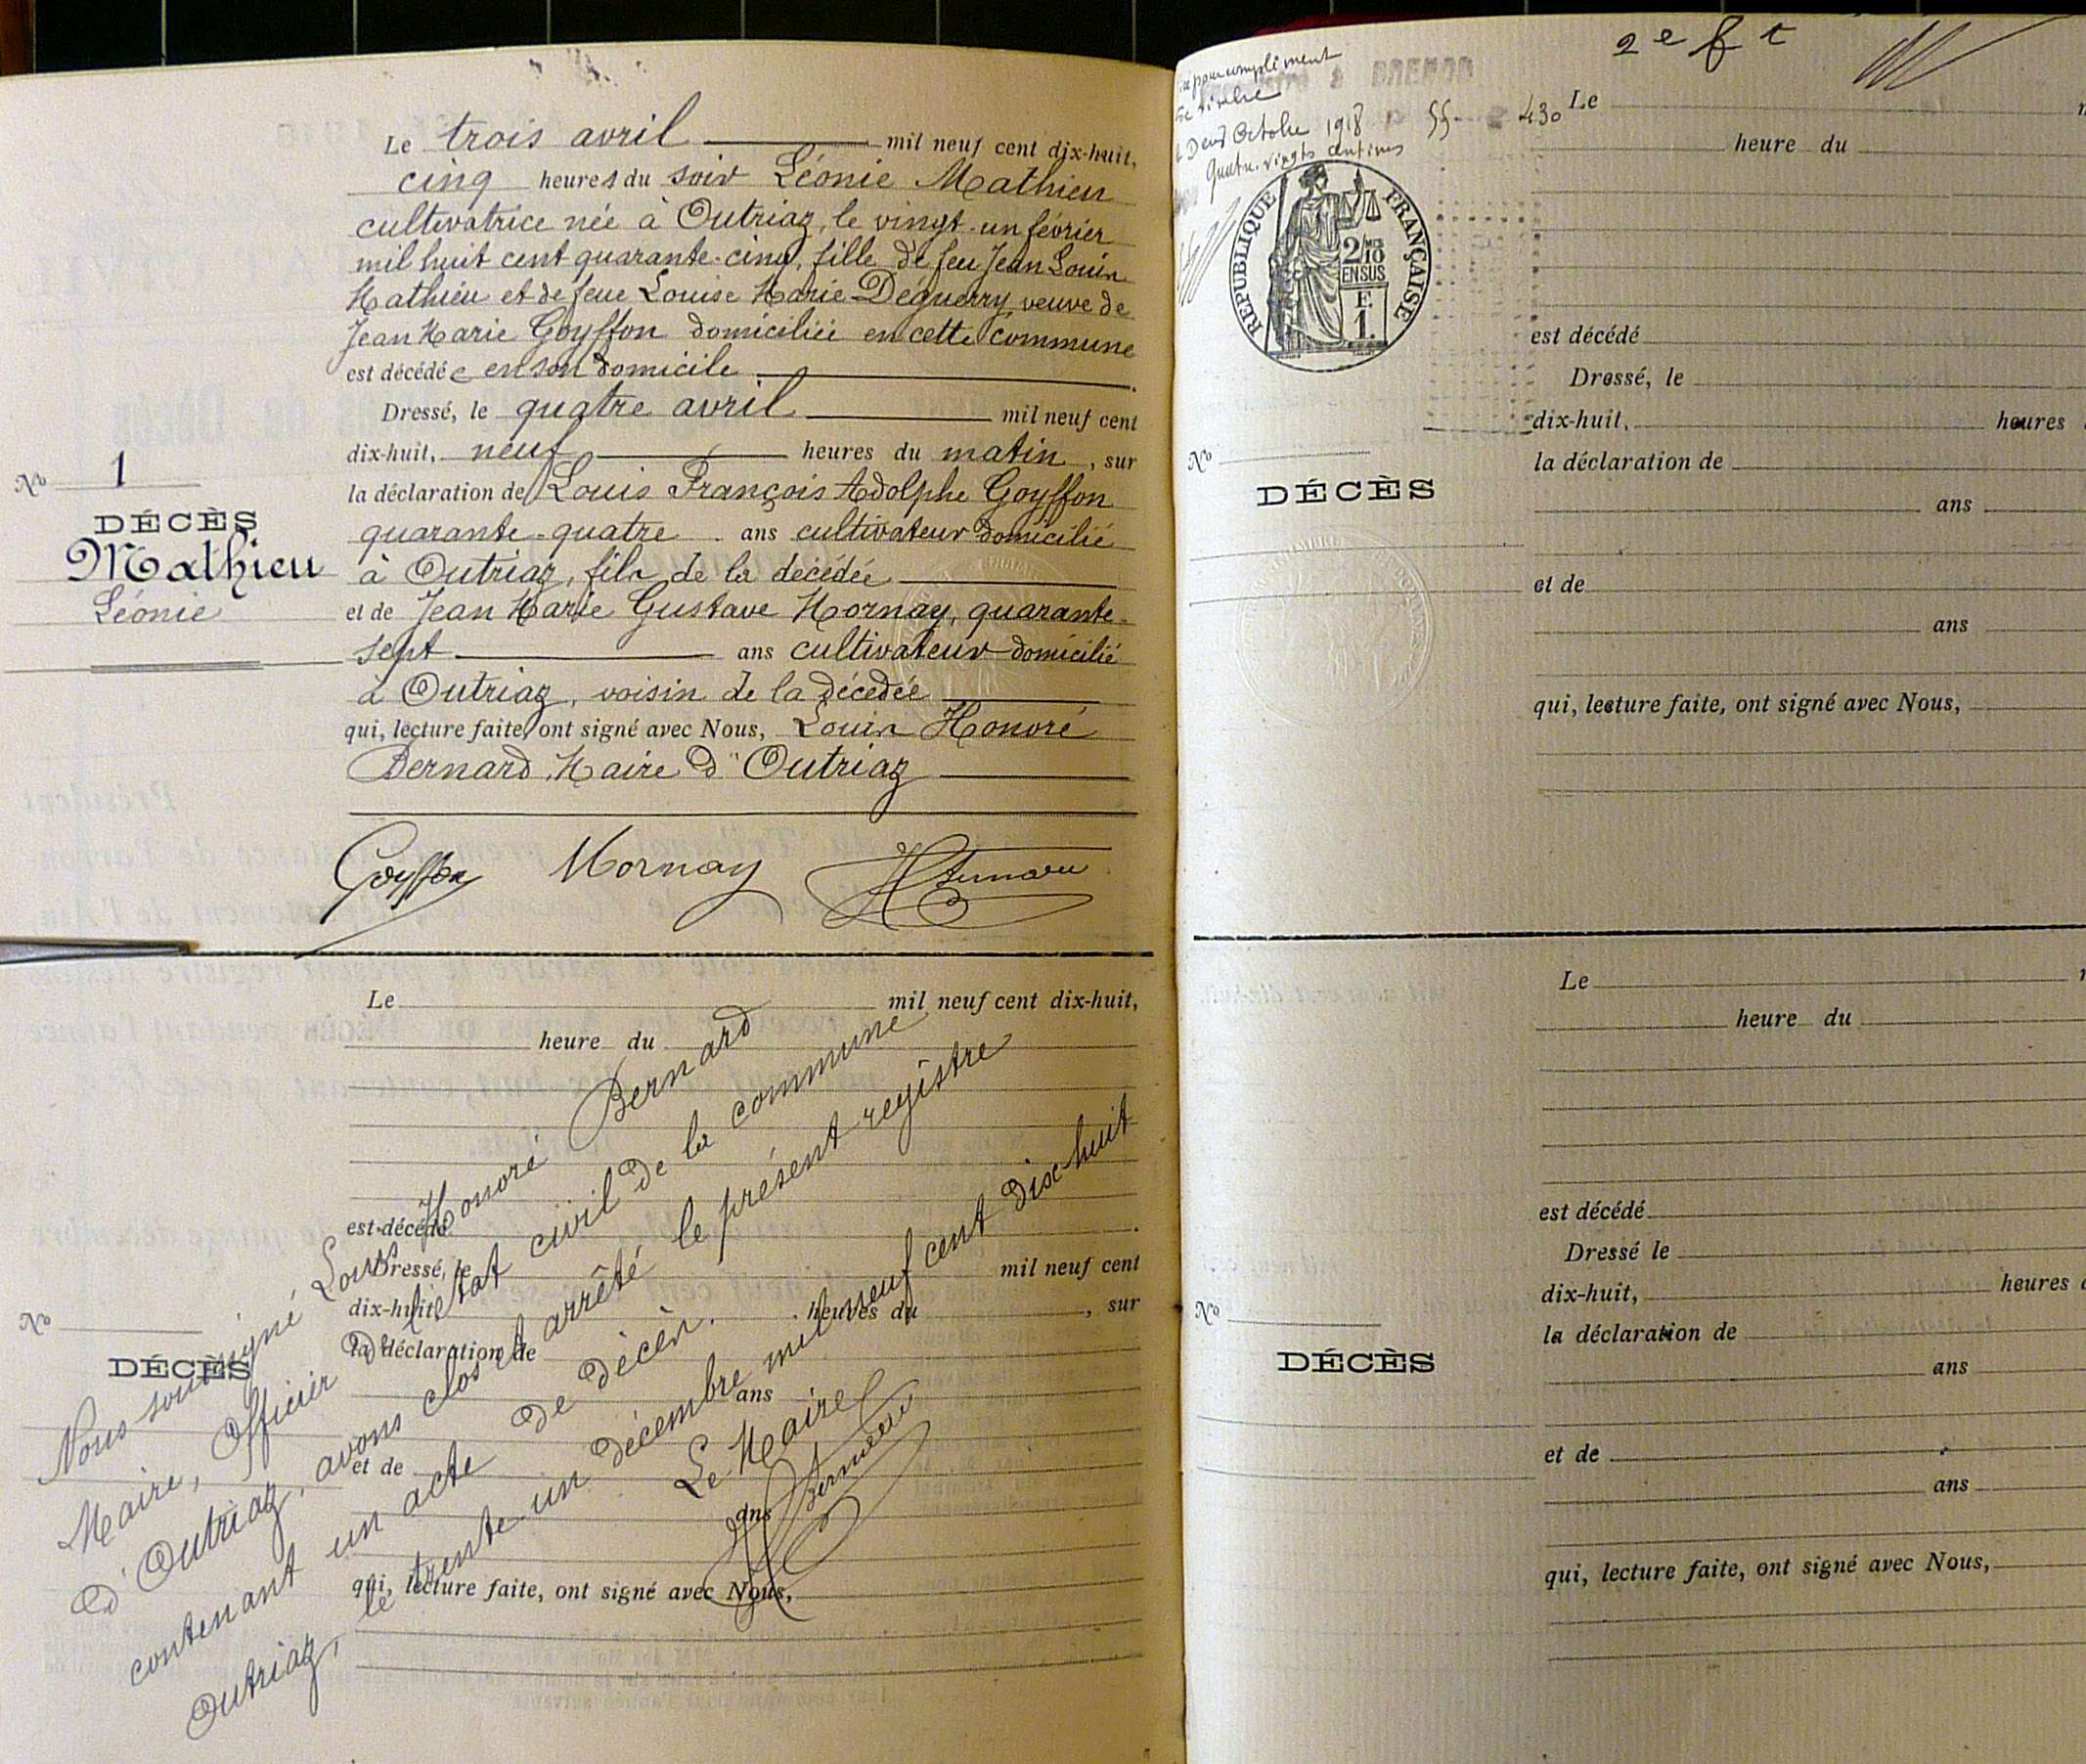 Le trois avril mil neuf cent dix-huit,
cinq heures du soir Léonie Mathieu
cultivatrice née à Outriaz, le vingt-un février
mil huit cent quarante-cinq, fille de feu Jean Louis
Mathieu et de feue Louise Marie Deguerry, veuve de
Jean Marie Goyffon domiciliée en cette commune
est décédée en son domicile.
Dressé, le quatre avril mil neuf cent
dix-huit, neuf heures du matin, sur
la déclaration de Louis François Adolphe Goyffon
quarante-quatre ans cultivateur domicilié
à Outriaz, fils de la décédée
et de Jean Marie Gustave Mornay, quarante-
sept ans cultivateur domicilié
à Outriaz, voisin de la décédée
qui, lecture faite, ont signé avec Nous, Louis Honoré
Bernard, Maire d'Outriaz
No 1
DÉCÈS
Mathieu
Léonie
Goyffon Mornay HBernard
Le mil neuf cent dix-huit,
heure du
est décédé
Dressé, le mil neuf cent
dix-huit, heures du , sur
la déclaration de
ans
et de
ans
qui, lecture faite, ont signé avec Nous,
No
DÉCÈS
Nous soussigné Louis Honoré Bernard
Maire, Officier de l'état civil de la commune
d'Outriaz, avons clos et arrêté le présent registre
contenant un acte de décès.
Outriaz, le trente-un décembre mil neuf cent dix-huit
Le Maire
HBernard
2e ft
pour compliment
de timbre
Deux Octobre 1918
Quatre-vingts centimes
430
REPUBLIQUE FRANÇAISE
2/10
EN SUS
F.
1.
Le
heure du
est décédé
Dressé, le
dix-huit, heures
la déclaration de
ans
et de
ans
qui, lecture faite, ont signé avec Nous,
No
DÉCÈS
Le
heure du
est décédé
Dressé le
dix-huit, heures
la déclaration de
ans
et de
ans
qui, lecture faite, ont signé avec Nous,
No
DÉCÈS